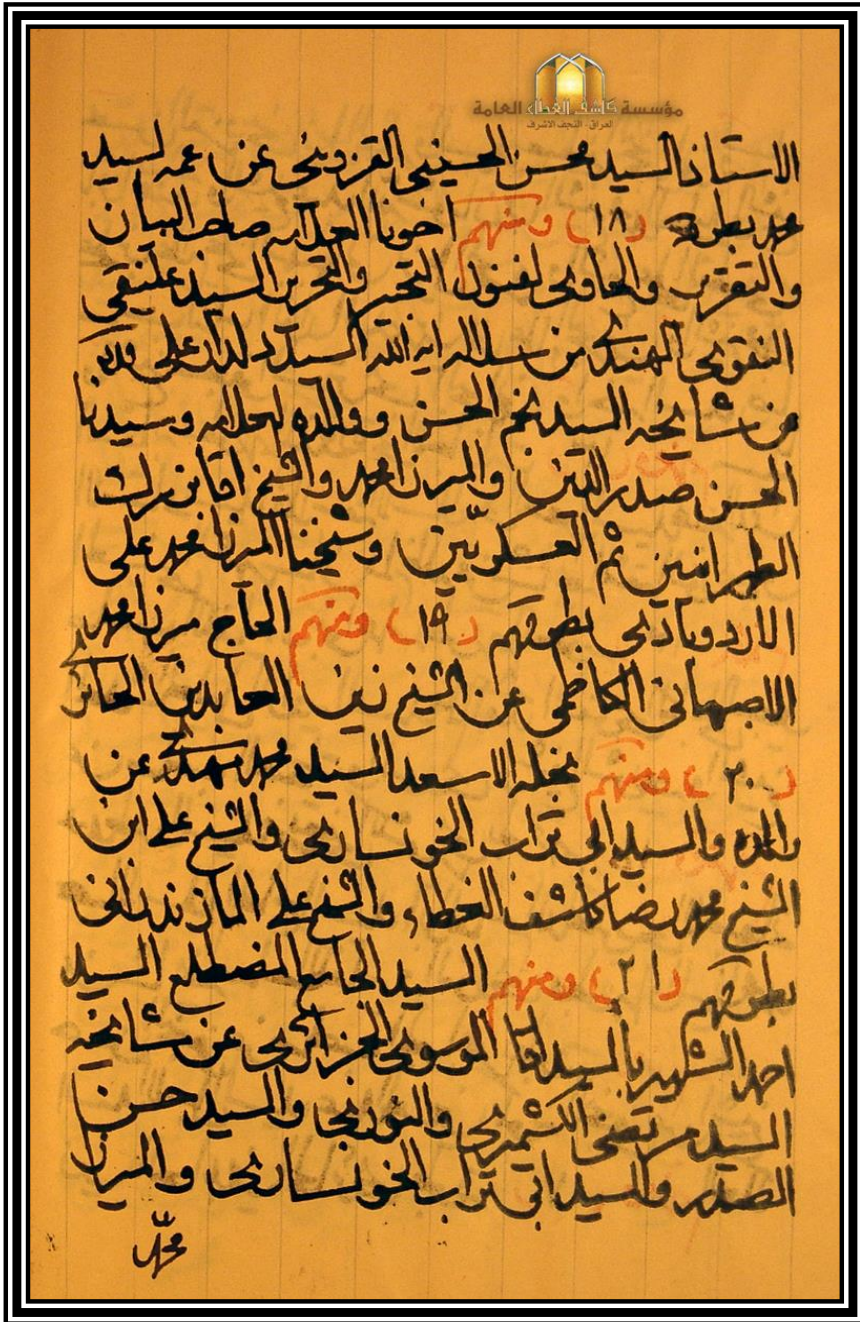 مؤسسة كاشف الغطاء العامة
العراق - النجف الاشرف
الاستاذ السيد محسن الحسيني القزويني عن عمه السيد
محمد بطرقه (١٨) ومنهم اخونا العلامه صاحب البيان
والتقرير والحاوي لفنون التحبير والتحرير السيد علينقي
النقوي الهندي من سلاله ايه الله السيد دلدار علي
عن مشايخه السيد نجم الحسن ووالده العلامه وسيدنا
الحسن صدر الدين والميرزا محمد والشيخ اقا بزرك
الطهرانيين ثم العسكريّين وشيخنا المرزا محمد علي
الاردوبادي بطرقهم (١٩) ومنهم الحاج ميرزا محمد
الاصبهاني الكاظمي عن الشيخ زين العابدين الحائري
(٢٠) ومنهم نجله الاسعد السيد محمد مهدي عن
والده والسيد ابي تراب الخونساري والشيخ علي ابن
الشيخ محمد رضا كاشف الغطاء والشيخ علي المازندراني
بطرقهم (٢١) ومنهم السيد الجامع المضطلع السيد
احمد الشهير بالسيد اقا الموسوي الجزائري عن مشايخه
السيد مرتضى الكشميري والنوري والسيد حسن
الصدر والسيد ابي تراب الخونساري والميرزا
محمّد